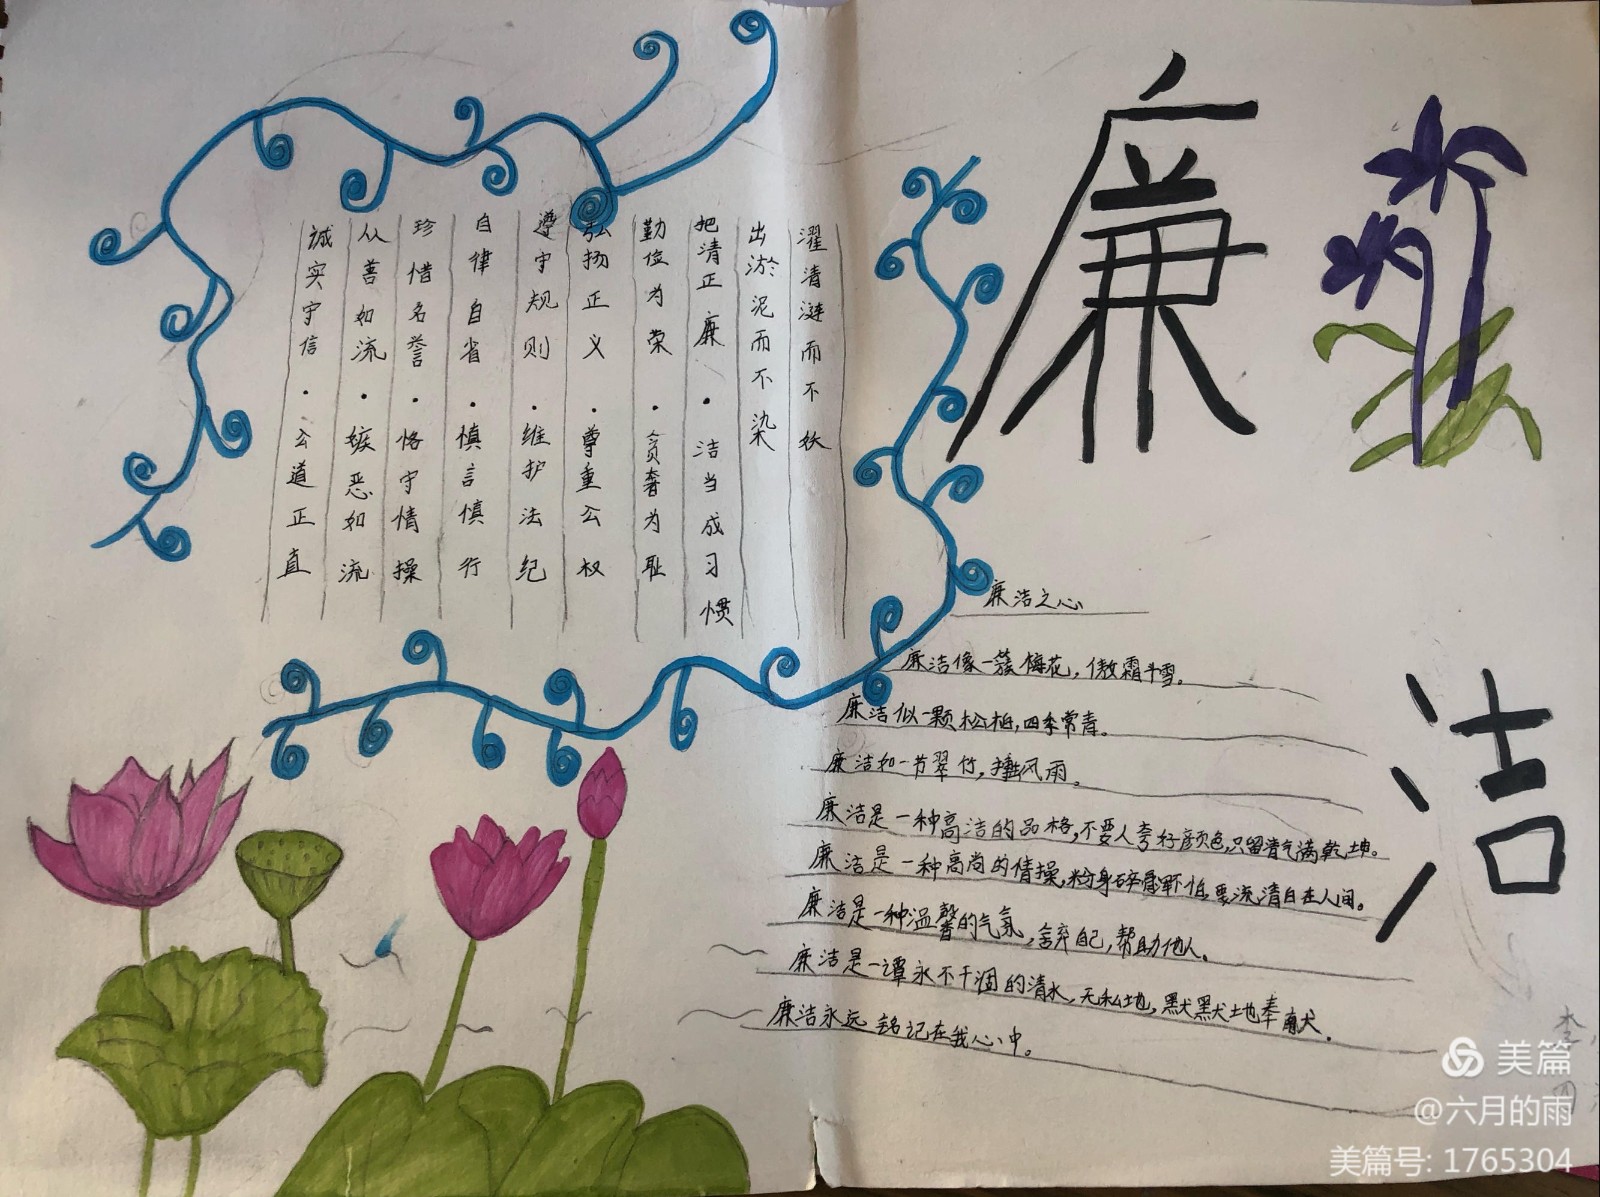 廉
洁
濯清涟而不妖
出淤泥而不染
把清正廉·洁当成习惯
勤俭为荣·贪奢为耻
弘扬正义·尊重公权
遵守规则·维护法纪
自律自省·慎言慎行
珍惜名誉·恪守情操
从善如流·嫉恶如流
诚实守信·公道正直
廉洁之心
廉洁像一簇梅花，傲霜斗雪。
廉洁似一颗松柏，四季常青。
廉洁如一节翠竹，风雨。
廉洁是一种高洁的品格，不要人夸好颜色，只留清气满乾坤。
廉洁是一种高尚的情操，粉身碎骨浑不怕，要流清白在人间。
廉洁是一种温馨的气氛，舍弃自己，帮助他人。
廉洁是一潭永不干涸的清水，无私地，默默地奉献。
廉洁永远铭记在我心中。
美篇
@六月的雨
美篇号: 1765304